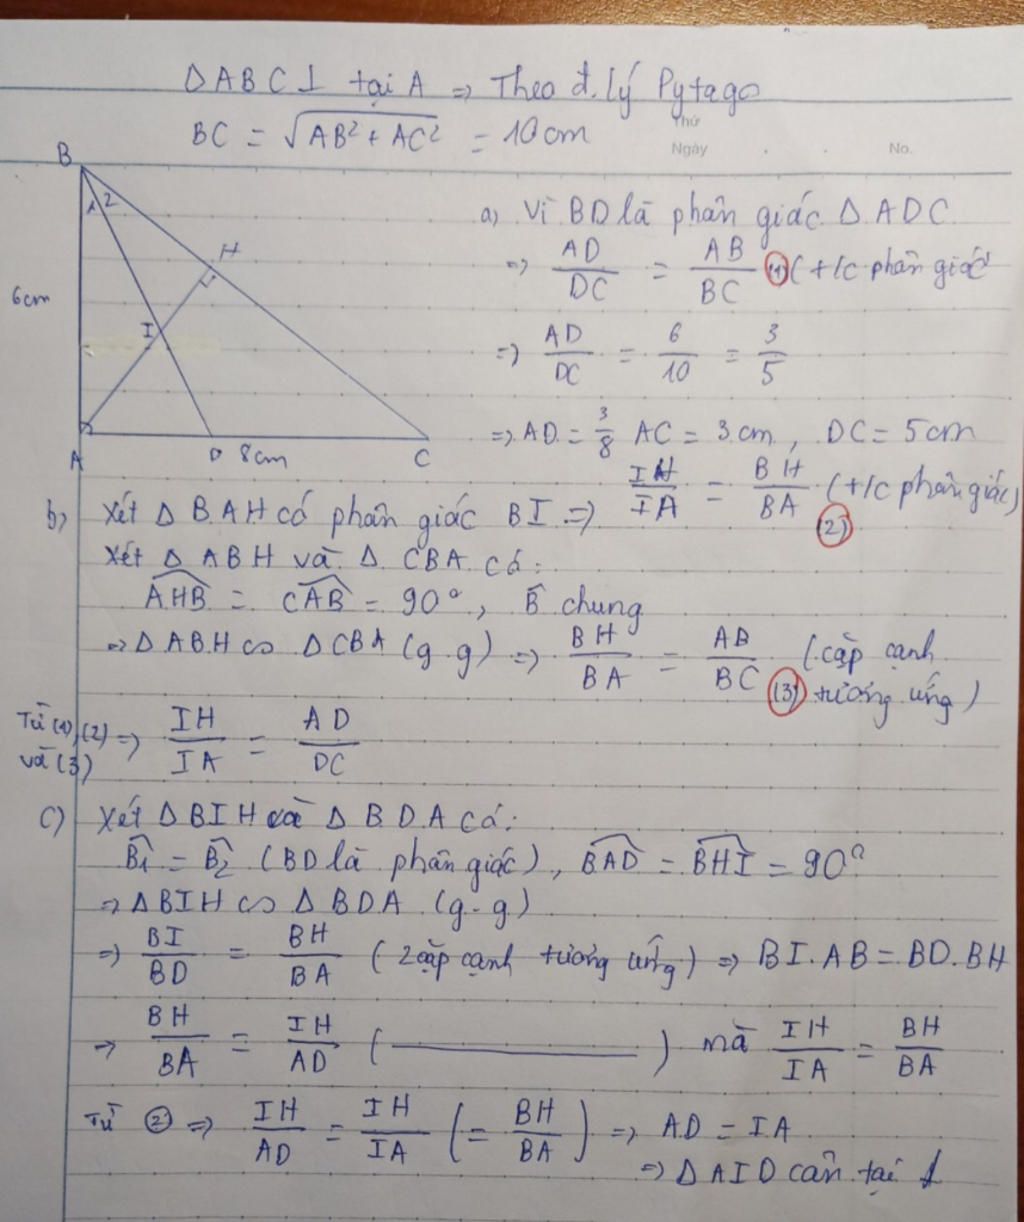 Δ ABC ⊥ tại A => Theo đ. lý Pytago
BC = √(AB² + AC²) = 10 cm
Thứ
Ngày
No.
B
1 2
H
6cm
I
A
D
8cm
C
a) Vì BD là phân giác Δ ADC
=> AD/DC = AB/BC (1) ( t/c phân giác
=> AD/DC = 6/10 = 3/5
=> AD = 3/8 AC = 3 cm, DC = 5 cm
b) Xét Δ BAH có phân giác BI => IH/IA = BH/BA (t/c phân giác) (2)
Xét Δ ABH và Δ CBA có:
AHB = CAB = 90°, B̂ chung
=> Δ ABH ∽ Δ CBA (g.g) => BH/BA = AB/BC (cặp cạnh
(3) tương ứng)
Từ (1), (2)
và (3) => IH/IA = AD/DC
c) Xét Δ BIH và Δ BDA có:
B̂1 = B̂2 (BD là phân giác), BAD = BHI = 90°
=> Δ BIH ∽ Δ BDA (g-g)
=> BI/BD = BH/BA (2 cặp cạnh tương ứng) => BI. AB = BD. BH
=> BH/BA = IH/AD ( ——— ) mà IH/IA = BH/BA
Từ (2) => IH/AD = IH/IA (= BH/BA) => AD = IA
=> Δ AID cân tại A